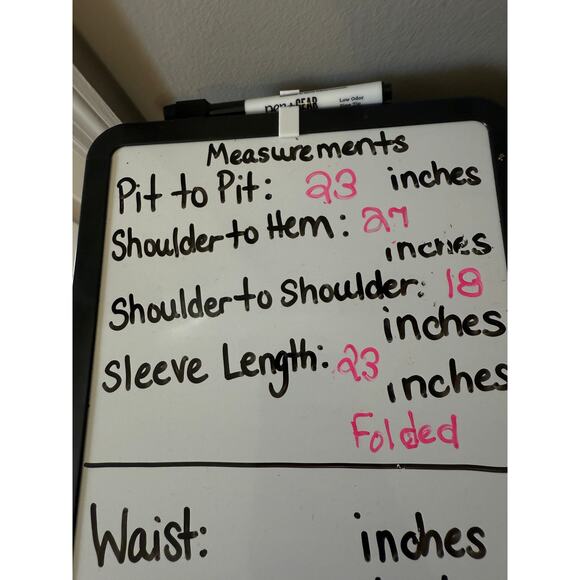 pen+GEAR
Low Odor
Fine Tip
Measurements
Pit to Pit: 23 inches
Shoulder to Hem: 27
inches
Shoulder to Shoulder: 18
inches
Sleeve Length: 23
inches
Folded
Waist: inches